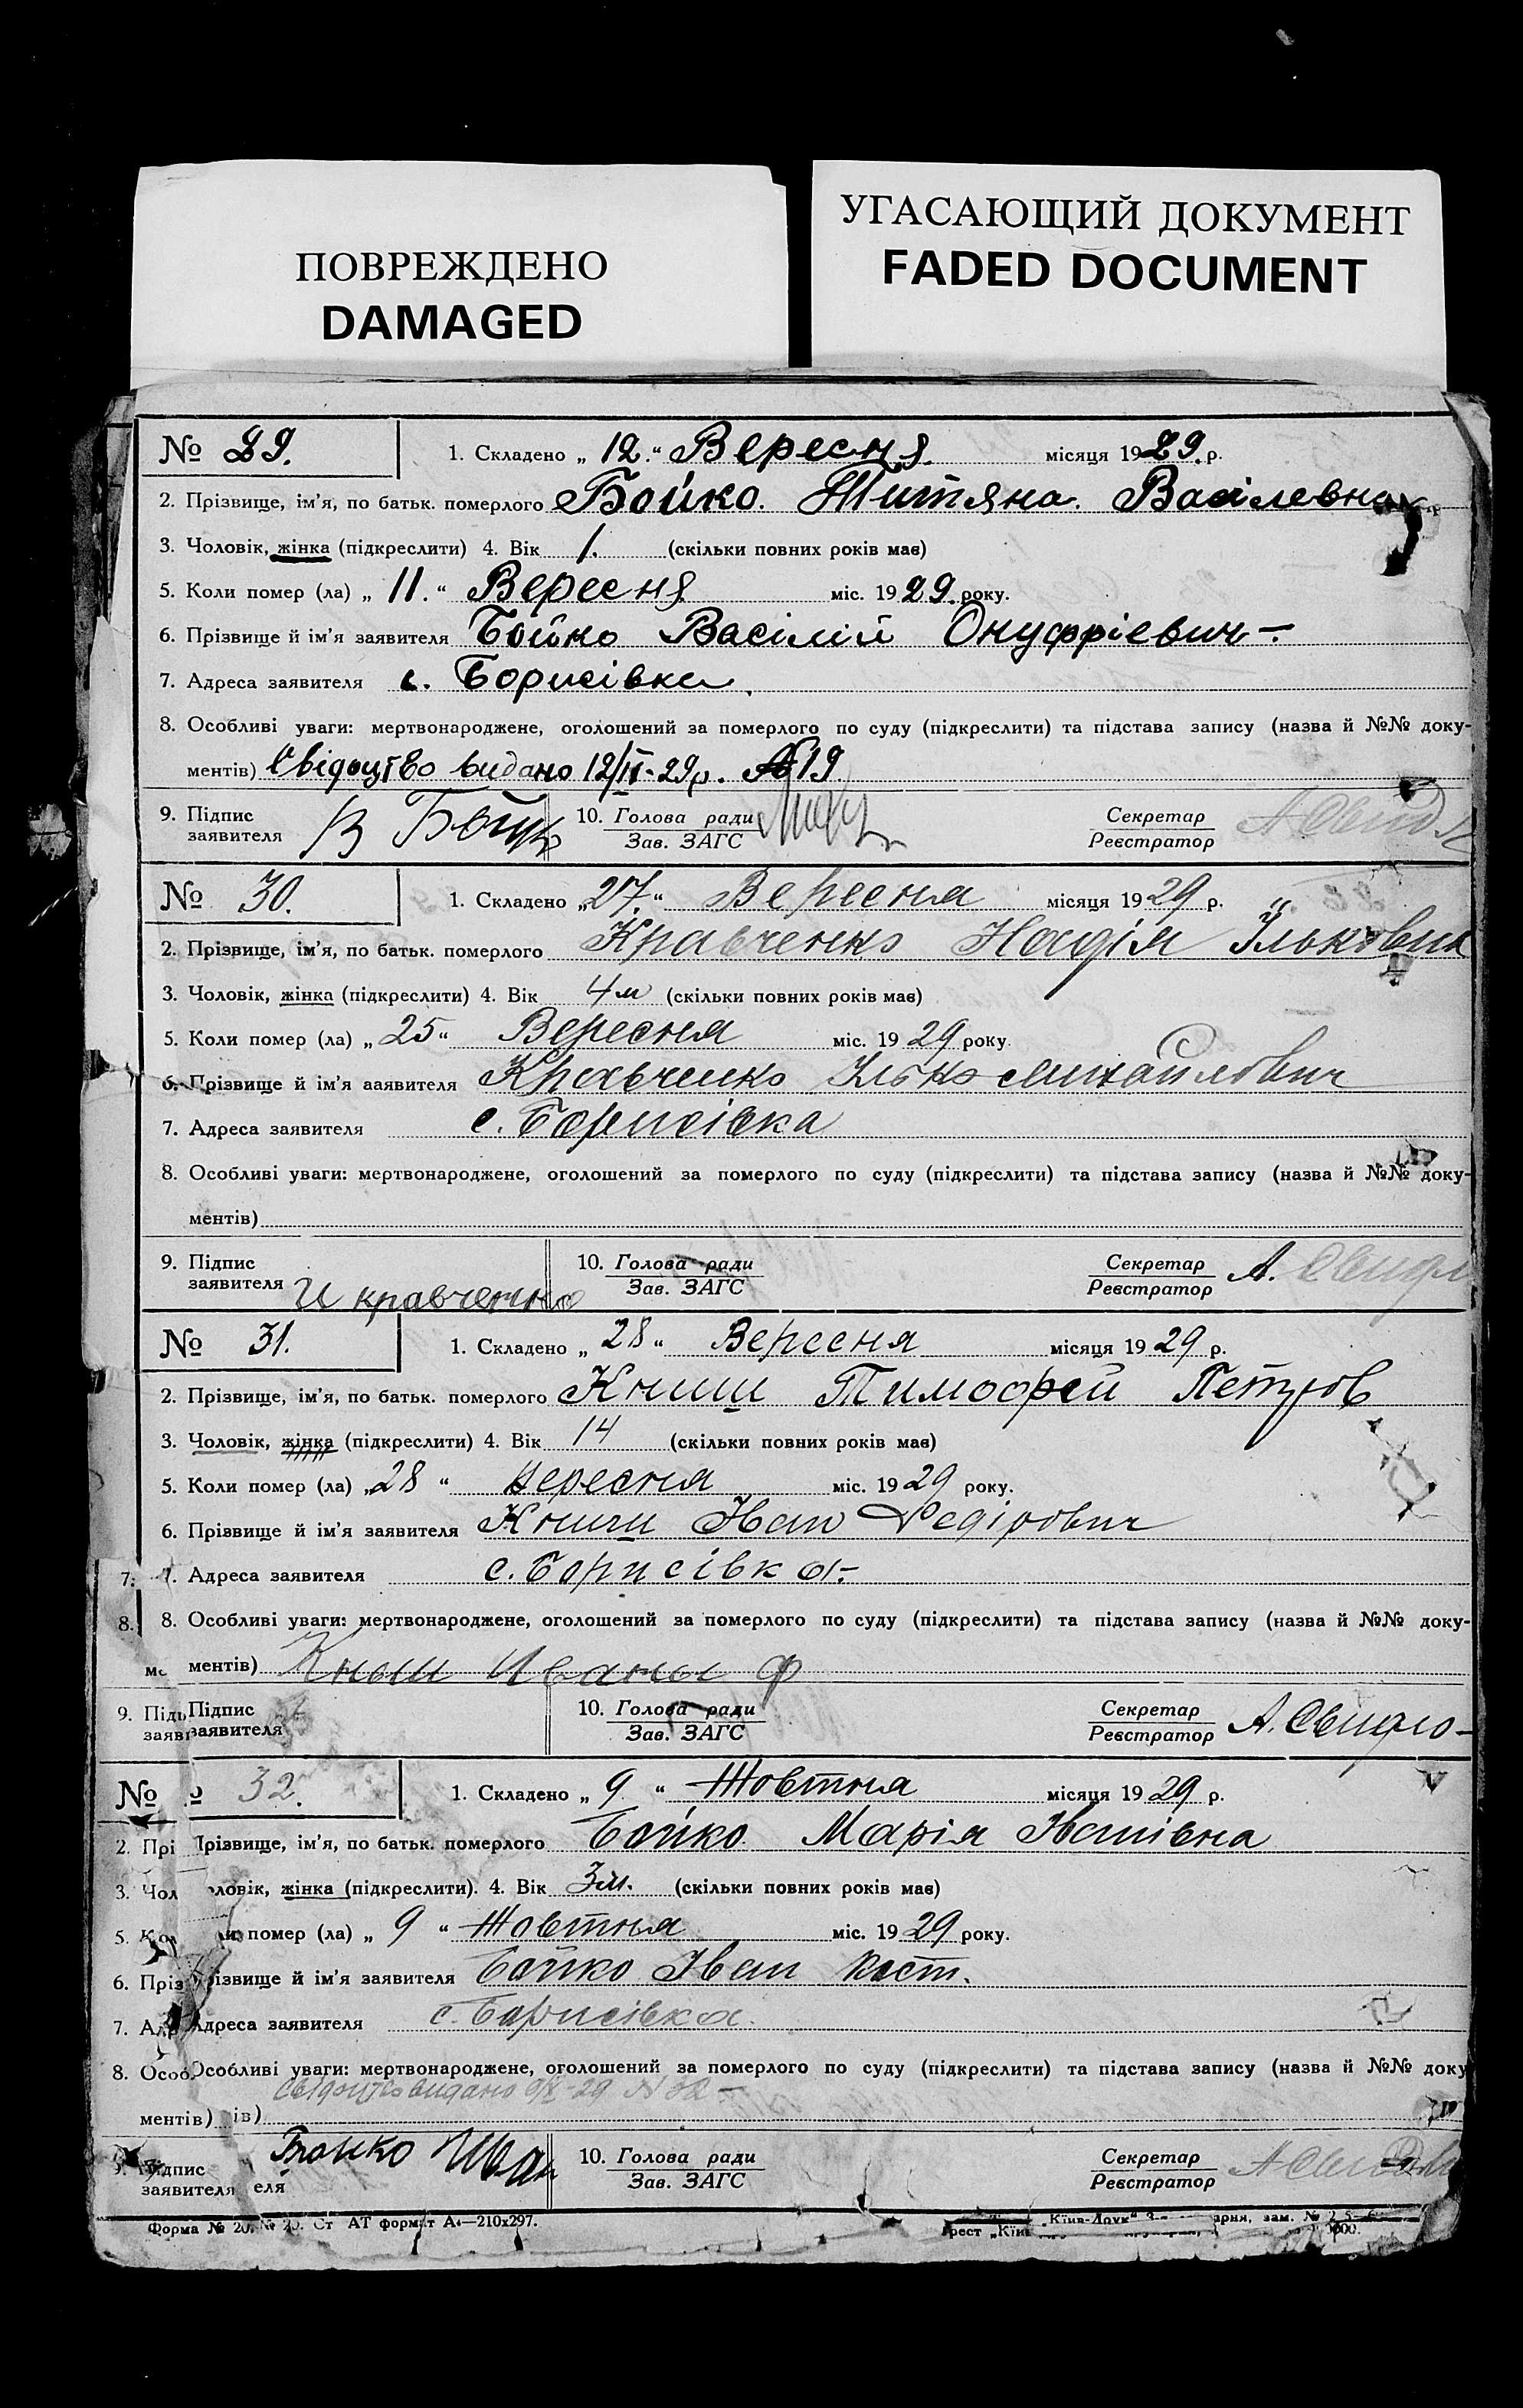 ПОВРЕЖДЕНО
DAMAGED
УГАСАЮЩИЙ ДОКУМЕНТ
FADED DOCUMENT
№ 29. 1. Складено „ 12. “ Вересня. місяця 1929. р.
2. Прізвище, ім’я, по батьк. померлого Бойко. Титяна. Василевна
3. Чоловік, жінка (підкреслити) 4. Вік 1. (скільки повних років має)
5. Коли помер (ла) „ 11. “ Вересня міс. 1929. року.
6. Прізвище й ім’я заявителя Бойко Васілій Онуфріевич –
7. Адреса заявителя с. Борисівка.
8. Особливі уваги: мертвонароджене, оголошений за померлого по суду (підкреслити) та підстава запису (назва й №№ доку-
ментів) Свідоцтво видано 12/ІХ-29р. №19
9. Підпис заявителя В Бойко 10. Голова ради Секретар
Зав. ЗАГС Реєстратор
№ 30. 1. Складено „27.“ Вересня місяця 1929 р.
2. Прізвище, ім’я, по батьк. померлого Кравченко Надія Ільковна
3. Чоловік, жінка (підкреслити) 4. Вік 4м (скільки повних років має)
5. Коли помер (ла) „ 25 “ Вересня міс. 1929 року.
6. Прізвище й ім’я заявителя Кравченко Ілько Михайлович
7. Адреса заявителя с. Борисівка
8. Особливі уваги: мертвонароджене, оголошений за померлого по суду (підкреслити) та підстава запису (назва й №№ доку-
ментів)
9. Підпис заявителя И кравченко 10. Голова ради Секретар А.
Зав. ЗАГС Реєстратор
№ 31. 1. Складено „ 28 “ Вересня місяця 1929 р.
2. Прізвище, ім’я, по батьк. померлого Книш Тимофей Петров
3. Чоловік, жінка (підкреслити) 4. Вік 14 (скільки повних років має)
5. Коли помер (ла) „28 “ вересня міс. 1929 року.
6. Прізвище й ім’я заявителя Книш Іван Федірович
7. 7. Адреса заявителя с. Борисівка –
8. 8. Особливі уваги: мертвонароджене, оголошений за померлого по суду (підкреслити) та підстава запису (назва й №№ доку-
ментів) Кныш Иваны ф
9. Підпис заявителя 10. Голова ради Секретар А. Свидло-
Зав. ЗАГС Реєстратор
№ 32. 1. Складено „ 9 “ Жовтня місяця 1929 р.
2. Прі Прізвище, ім’я, по батьк. померлого Бойко Марія Іванівна
3. Чол оловік, жінка (підкреслити). 4. Вік 3м. (скільки повних років має)
5. помер (ла) „ 9 “ Жовтня міс. 1929 року.
6. Пріз різвище й ім’я заявителя Бойко Іван Кост.
7. Адр Адреса заявителя с. Борисівка.
8. Особ. Особливі уваги: мертвонароджене, оголошений за померлого по суду (підкреслити) та підстава запису (назва й №№ доку
Свідоцтво видано 9/Х-29 № 32 –
ментів) ів)
9. Підпис Бойко Іван 10. Голова ради Секретар
заявителя еля Зав. ЗАГС Реєстратор
Форма № 20. № 20. Ст АТ формат А₄—210х297.